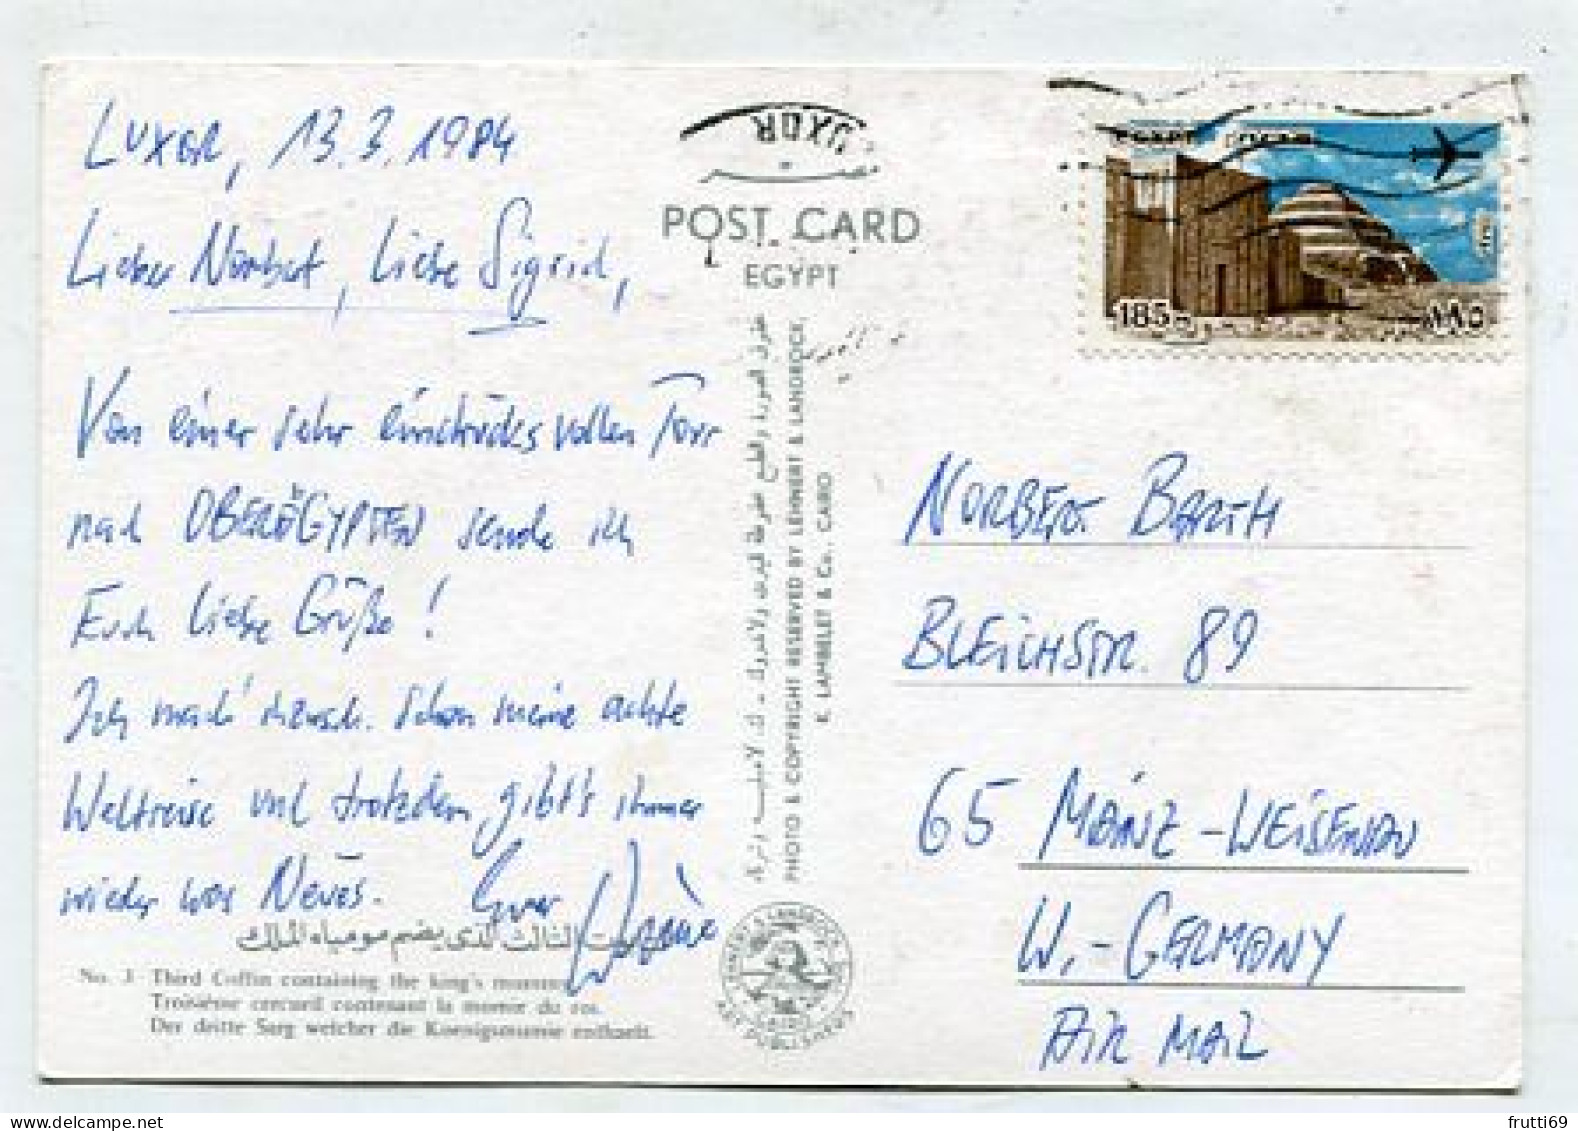 LUXOR, 13.3.1984
Lieber Norbert, liebe Sigrid,
Von einer sehr eindrucksvollen Tour
nach OBERÄGYPTEN sende ich
Euch liebe Grüße!
Ich mach' schon meine achte
Weltreise und trotzdem gibt's immer
wieder was Neues. Euer
الثالث الذى يضم مومياء الملك
No. 3 Third Coffin containing the king's mummy
Troisième cercueil contenant la momie du roi.
Der dritte Sarg welcher die Koenigsmumie enthaelt.
LUXOR
POST CARD
EGYPT
PHOTO & COPYRIGHT RESERVED BY LEHNERT & LANDROCK,
K. LAMBELET & Co., CAIRO
LEHNERT & LANDROCK
CAIRO
ART PUBLISHERS
EGYPT
185
١٨٥
NORBERT BARTH
BLEICHSTR. 89
65 MAINZ-WEISENAU
W.-GERMANY
AIR MAIL
frutti69